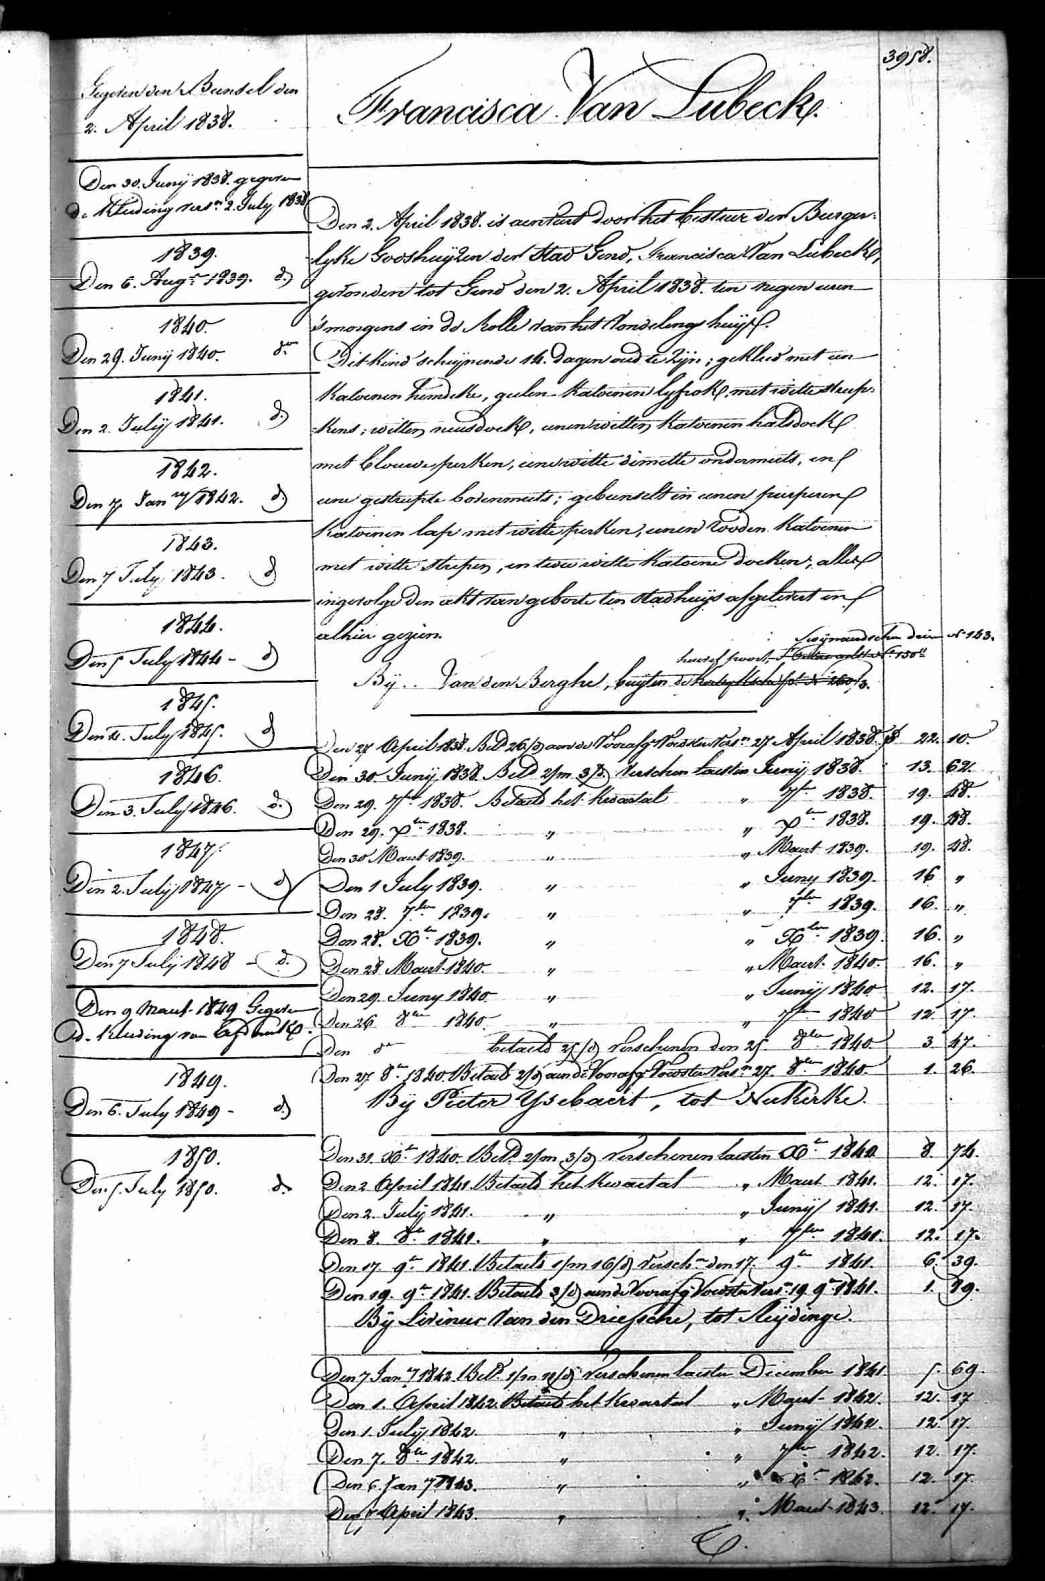 3958.
Francisca Van Lubeck.
Gegeven den Bunsel den
2. April 1838.
Den 30. Junij 1838. gegeven
de Kleeding vers.n 2. July 1838
1839.
Den 6. Aug.t 1839. d.o
1840.
Den 29. Junij 1840. d.o
1841.
Den 2. Julij 1841. d.o
1842.
Den 7. Jan.ry 1842. d.o
1843.
Den 7 July 1843. d.o
1844.
Den 5 July 1844 - d.o
1845.
Den 4. July 1845. d.o
1846.
Den 3. July 1846. d.o
1847.
Den 2. July 1847 - d.o
1848.
Den 7 July 1848 - d.o
Den 9 Maert 1849 Gegeven
de Kleeding van
1849.
Den 6. July 1849 - d.o
1850.
Den 5. July 1850. d.o
Den 2. April 1838. is aenveert door het Bestuer der Burger-
lyke Godshuyzen der Stad Gend, Francisca Van Lubeck,
gevonden tot Gend den 2. April 1838. ten negen uren
's morgens in de Rolle van het Vondelings huys.
Dit kind scheynende 14. dagen oud te zyn; gekleed met een
katoenen hemdeke, geelen katoenen lyfrok, met witte streep-
kens; witten neusdoek, eenen witten katoenen halsdoek
met blauwe perken, eene witte dimette ondermuts, en
eene gestreepte bovenmuts; gebunselt in eenen purperen
katoenen lap met witte perken, eenen rooden katoenen
met witte strepen, en twee witte katoene doeken; alles
ingevolge den akt van geborte ten stadhuys afgelevert en
alhier gezien.
N.o 143.
Bij . Van den Berghe, buyten de
Den 28 April 1838. Bet.d 26/d aen de Voorafg. Voedster vers.n 27 April 1838. f 22. 10.
Den 30. Junij 1838. Bet.d 2/m 3/d verschenen laesten Junij 1838. 13. 62.
Den 29. 7ber 1838. Betaeld het kwartael " 7ber 1838. 19. 48.
Den 29. Xber 1838. " " Xber 1838. 19. 48.
Den 30 Maert 1839. " " Maert 1839. 19. 48.
Den 1 July 1839. " " Juny 1839. 16 "
Den 28. 7ber 1839. " " 7ber 1839. 16. "
Den 28. Xber 1839. " " Xber 1839. 16. "
Den 28 Maert 1840. " " Maert 1840. 16. "
Den 29. Juny 1840. " " Junij 1840 12. 17.
Den 26 8ber 1840. " " 7ber 1840 12. 17.
Den d.o betaeld 25/d verschenen den 25 8ber 1840 3. 47.
Den 27 8ber 1840. Betaeld 2/d aen de Voorafg. Voedster vers.n 27. 8ber 1840. 1. 26.
Bij Pieter Ysebaert, tot Nukerke
Den 31. Xber 1840. Bet.d 2/m 3/d verschenen laesten Xber 1840. 8. 74.
Den 2 April 1841. Betaeld het kwartael " Maert 1841. 12. 17.
Den 2. July 1841. " " Junij 1841. 12. 17.
Den 8. 8ber 1841. " " 7ber 1841. 12. 17.
Den 17. 9ber 1841. Betaeld 1/m 16/d versch.n den 17. 9ber 1841. 6. 39.
Den 19. 9ber 1841. Betaeld 3/d aen de Voorafg. Voedster vers.n 19. 9ber 1841. 1. 89.
Bij Livinus Van den Driessche, tot Sleydinge.
Den 7 Jan.ry 1842. Bet.d 1/m 12/d verschenen laesten December 1841. 5. 69.
Den 1. April 1842. Betaeld het kwartael " Maert 1842. 12. 17
Den 1. July 1842. " " Junij 1842. 12. 17.
Den 7. 8ber 1842. " " 7ber 1842. 12. 17.
Den 6. Jan.ry 1843. " " Xber 1842. 12. 17.
Den 7 April 1843. " " Maert 1843. 12. 17.